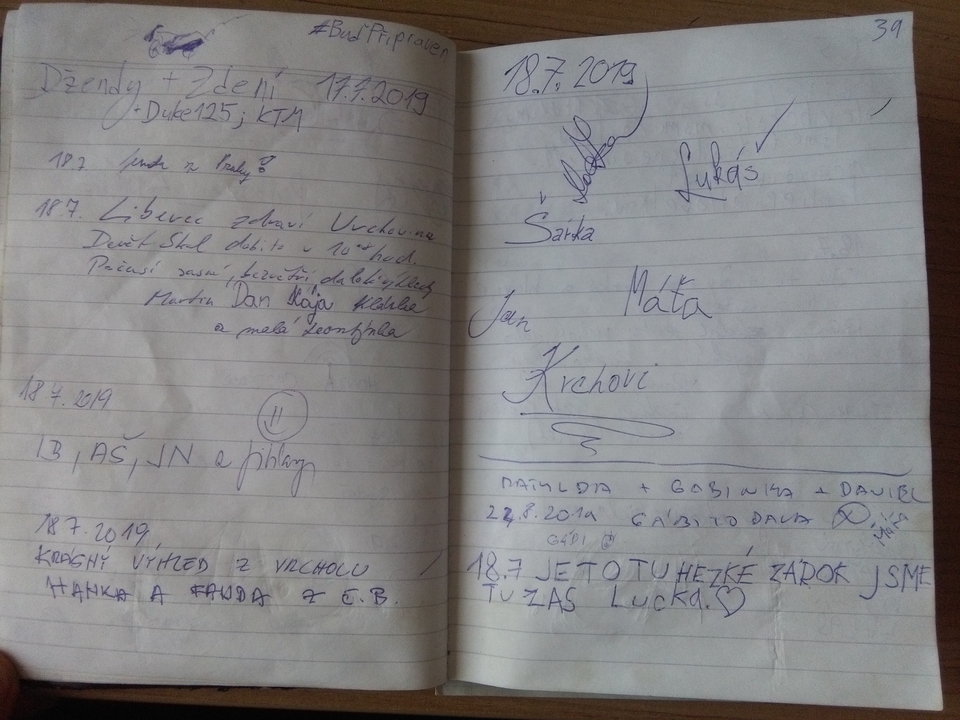 #BuďPřipraven
Džendy + Zdení 17.7.2019
- Duke125; KTM
18.7 z Prahy
18.7. Liberec zdraví Vrchovinu
Devět Skal dobito v 10 hod.
Počasí jasné, bezvětří, daleké výhledy
Martin Dan Kája
a malá
18.7.2019
IB, AŠ, JN a jihlavy
18.7.2019
KRÁSNÝ VÝHLED Z VRCHOLU
HANKA A FANDA Z Č.B.
39
18.7.2019
Šárka
Lukáš
Jan
Máťa
Krchovi
MATYLDA + GABINKA + DANIEL
22.8.2019 GÁBI TO DALA
GÁBI
18.7 JE TO TU HEZKÉ ZÁROK JSME
TU ZAS Lucka.